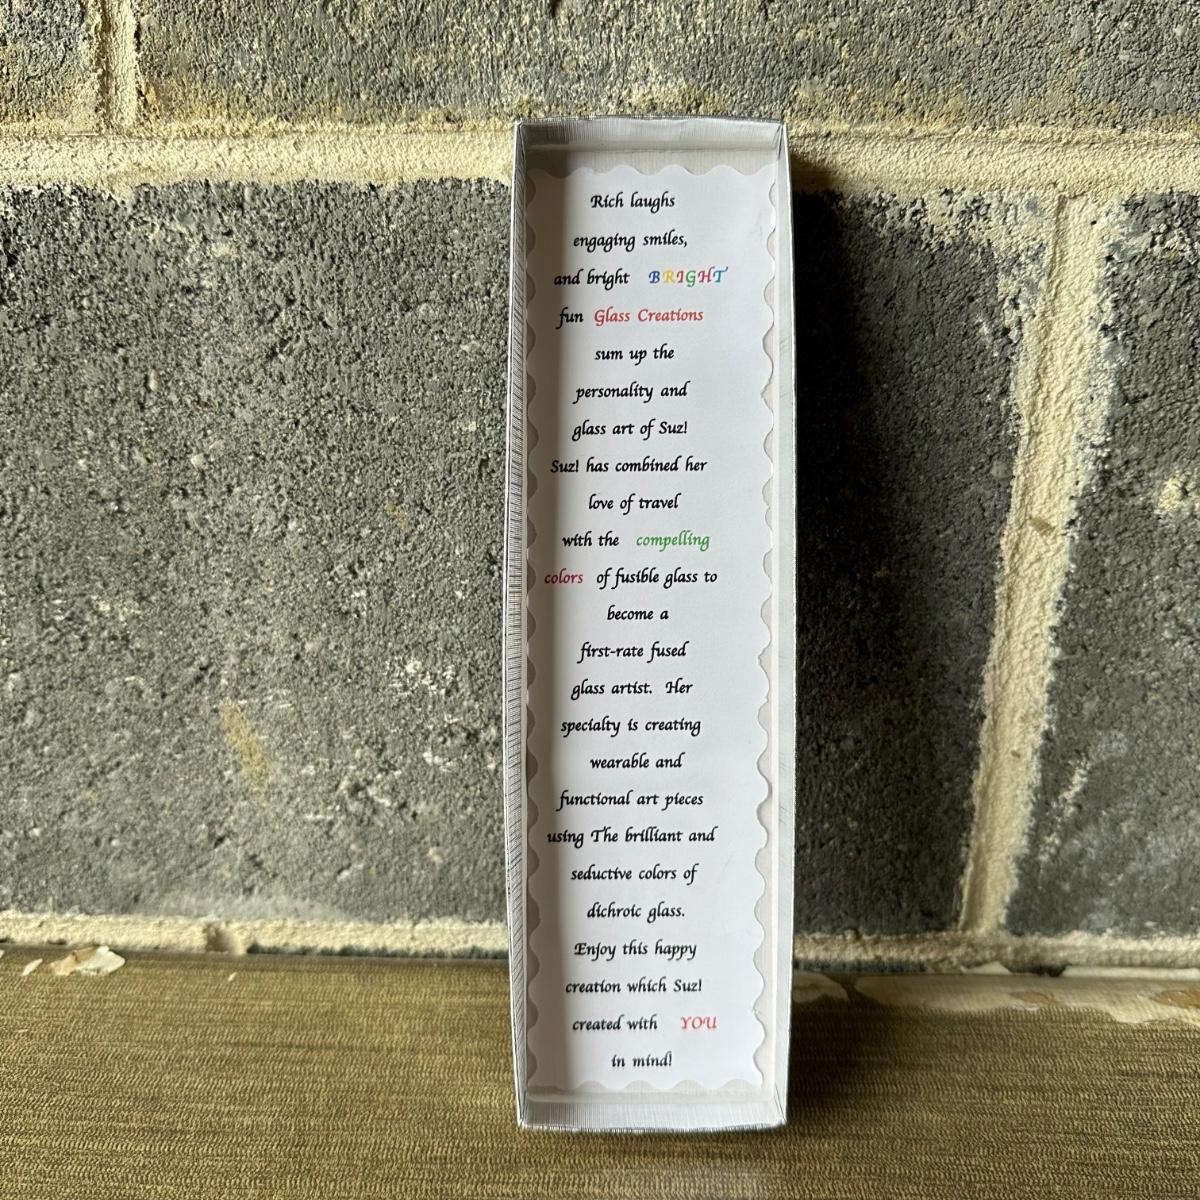 Rich laughs
engaging smiles,
and bright BRIGHT
fun Glass Creations
sum up the
personality and
glass art of Suz!
Suz! has combined her
love of travel
with the compelling
colors of fusible glass to
become a
first-rate fused
glass artist. Her
specialty is creating
wearable and
functional art pieces
using The brilliant and
seductive colors of
dichroic glass.
Enjoy this happy
creation which Suz!
created with YOU
in mind!